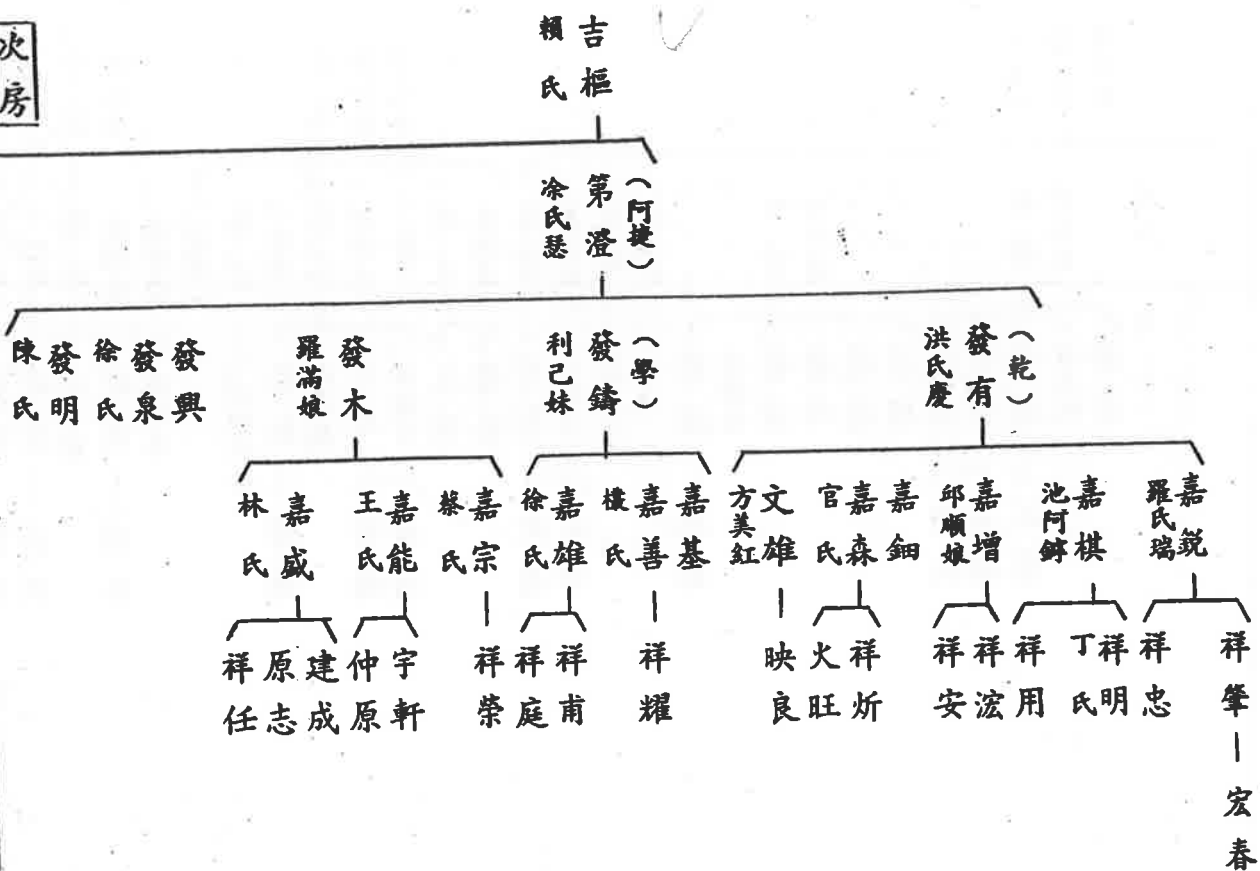 次房
吉樞
賴氏
（阿捷）
第澄
凃氏瑟
（乾）
發有
洪氏慶
（學）
發鑄
利己妹
發木
羅滿娘
發興
發泉
徐氏
發明
陳氏
嘉銳
羅氏瑞
嘉棋
池阿
嘉增
邱順娘
嘉鈿
嘉森
官氏
文雄
方美紅
嘉基
嘉善
氏
嘉雄
徐氏
嘉宗
蔡氏
嘉能
王氏
嘉盛
林氏
祥肇
祥忠
祥明
丁氏
祥用
祥浤
祥安
祥炘
火旺
映良
祥耀
祥甫
祥庭
祥榮
宇軒
仲原
建成
原志
祥任
宏春